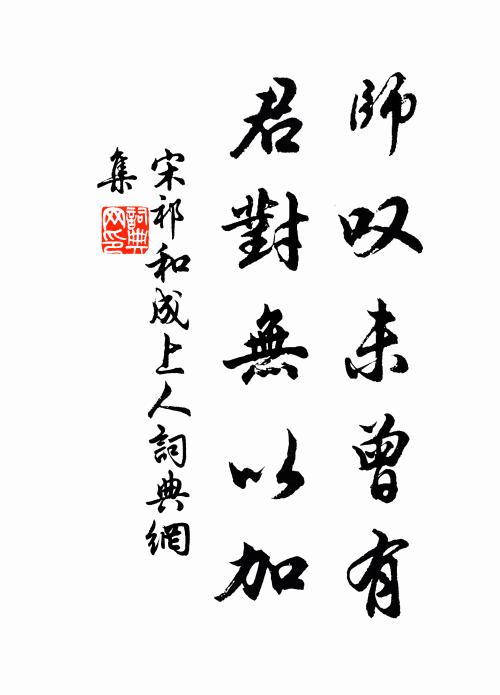 師叹未曾有
君對無以加
宋祁和成上人詞典網
集
詞典网印